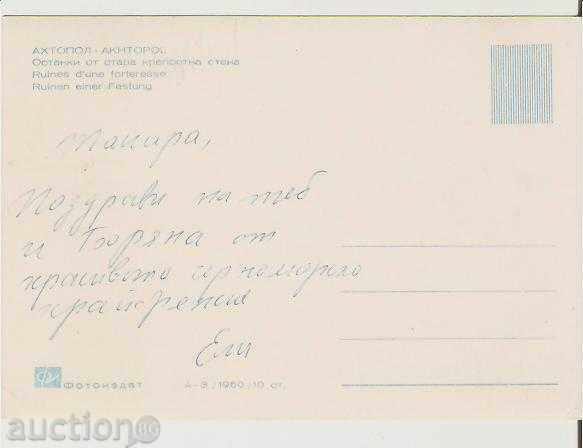 АХТОПОЛ - AKHTOPOL
Останки от стара крепостна стена
Ruines d'une forteresse
Ruinen einer Festung
Поздрави на теб
и Боряна от
красивото черноморско
крайбрежие
Ели
Фотоиздат
А-3/1960/10 ст.
auction.bg